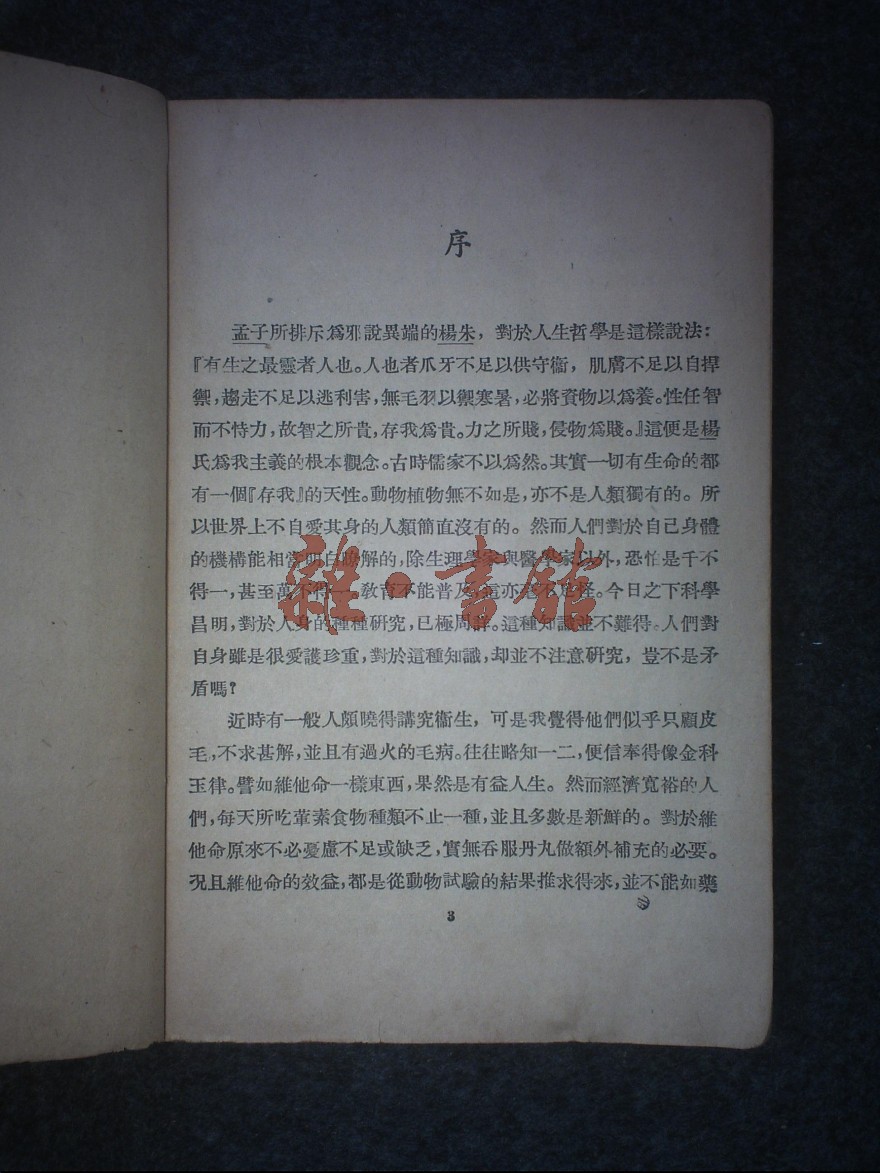 序
孟子所排斥爲邪說異端的楊朱，對於人生哲學是這樣說法：
『有生之最靈者人也。人也者爪牙不足以供守衞，肌膚不足以自捍
禦，趨走不足以逃利害，無毛羽以禦寒暑，必將資物以爲養。性任智
而不恃力，故智之所貴，存我爲貴。力之所賤，侵物爲賤。』這便是楊
氏爲我主義的根本觀念。古時儒家不以爲然。其實一切有生命的都
有一個『存我』的天性。動物植物無不如是，亦不是人類獨有的。所
以世界上不自愛其身的人類簡直沒有的。然而人們對於自己身體
的機構能相當明白瞭解的，除生理學家與醫學家以外，恐怕是千不
得一，甚至萬不得一。敎育不能普及，這亦不足怪。今日之下科學
昌明，對於人身的種種研究，已極周詳。這種知識並不難得。人們對
自身雖是很愛護珍重，對於這種知識，却並不注意研究，豈不是矛
盾嗎？
近時有一般人頗曉得講究衞生，可是我覺得他們似乎只顧皮
毛，不求甚解，並且有過火的毛病。往往略知一二，便信奉得像金科
玉律。譬如維他命一樣東西，果然是有益人生。然而經濟寬裕的人
們，每天所吃葷素食物種類不止一種，並且多數是新鮮的。對於維
他命原來不必憂慮不足或缺乏，實無吞服丹丸做額外補充的必要。
況且維他命的效益，都是從動物試驗的結果推求得來，並不能如藥
3
雜·書館